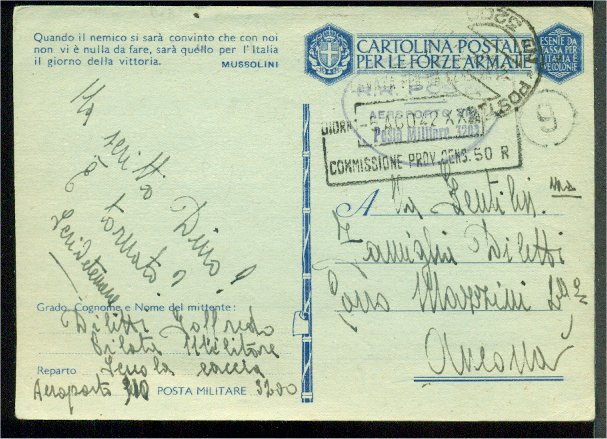 Quando il nemico si sarà convinto che con noi
non vi è nulla da fare, sarà quello per l'Italia
il giorno della vittoria.
MUSSOLINI
CARTOLINA POSTALE
PER LE FORZE ARMATE
ESENTE DA
TASSA PER
L'ITALIA E
LE COLONIE
POSTA
3200
9
AEROPORTO
Posta Militare 3200
COMMISSIONE PROV. CENS. 50 R
Ha scritto Dino?
È tornato?
A
Famiglia Diletti
Corso Mazzini
Ancona
Grado, Cognome e Nome del mittente:
Diletti Goffredo
Pilota Militare
Reparto Scuola caccia
Aeroporto 310 POSTA MILITARE 3200